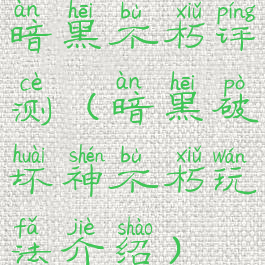 àn hēi bù xiǔ píng
暗黑不朽评
cè àn hēi pò
测(暗黑破
huài shén bù xiǔ wán
坏神不朽玩
fǎ jiè shào
法介绍)